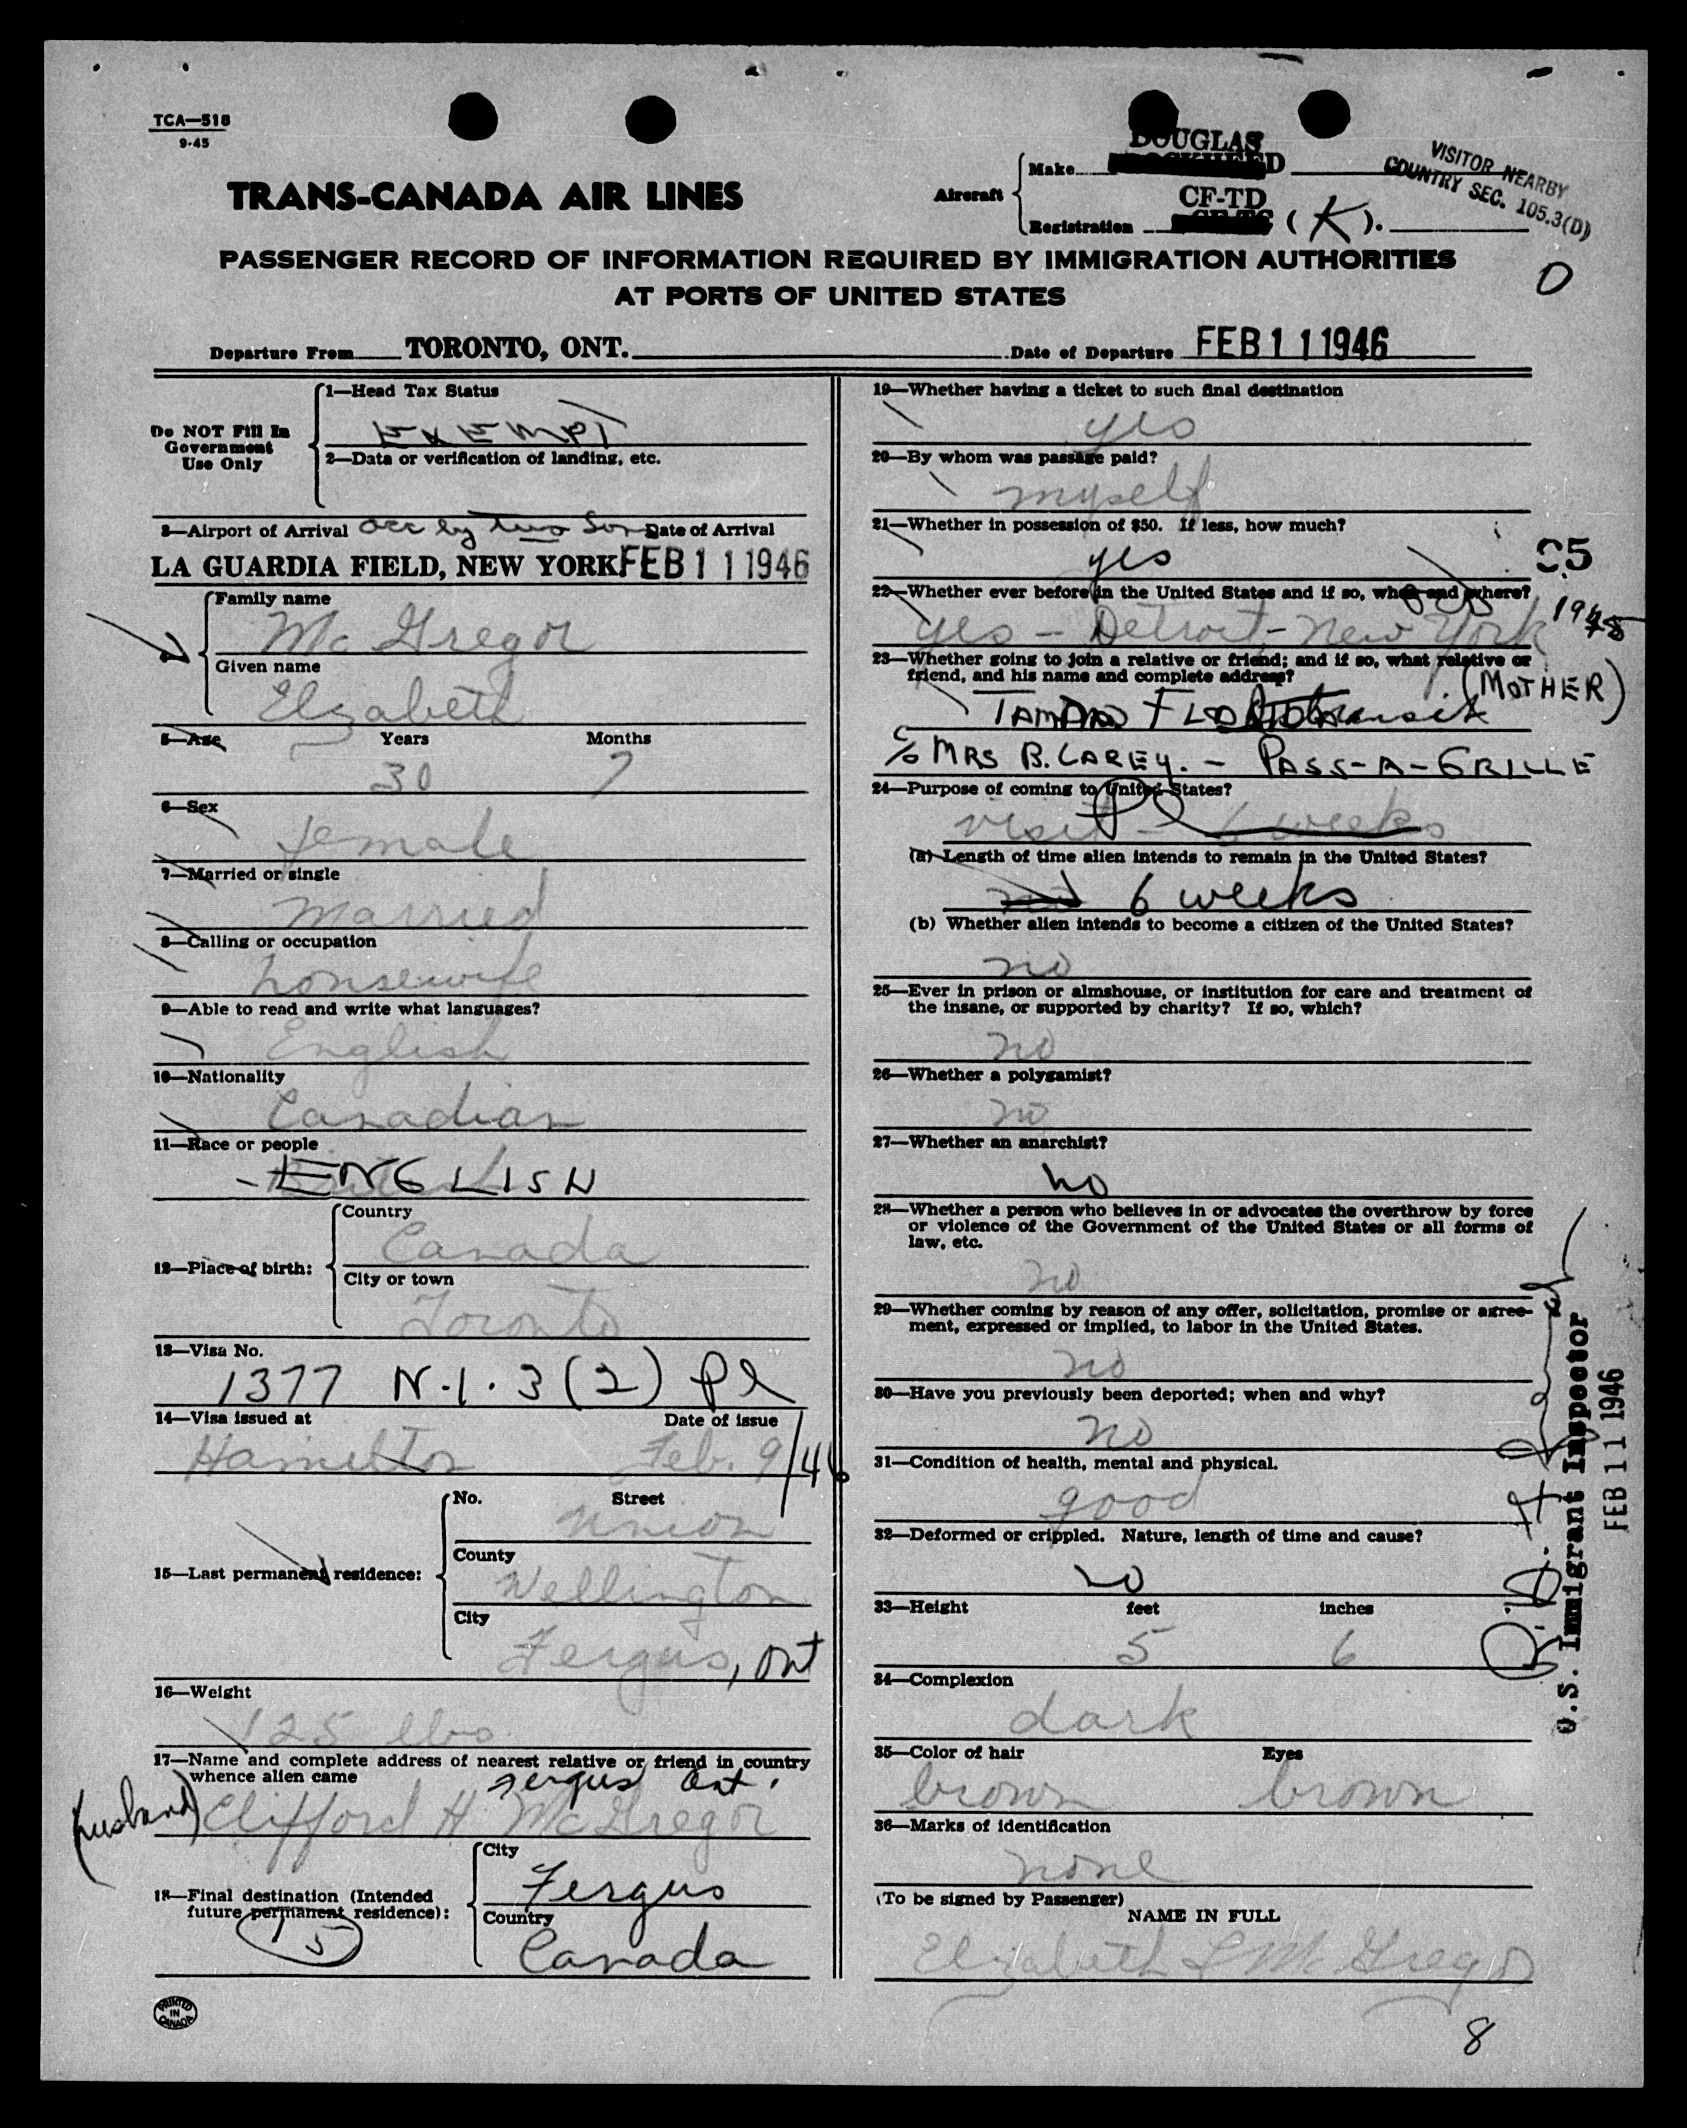 TCA—518
9-45
TRANS-CANADA AIR LINES
Aircraft
Make
DOUGLAS
Registration
CF-TD
(K).
VISITOR NEARBY
COUNTRY SEC. 105.3(D)
PASSENGER RECORD OF INFORMATION REQUIRED BY IMMIGRATION AUTHORITIES
AT PORTS OF UNITED STATES
0
Departure From TORONTO, ONT. Date of Departure FEB 11 1946
Do NOT Fill In
Government
Use Only
1—Head Tax Status
EXEMPT
2—Data or verification of landing, etc.
3—Airport of Arrival acc by two Sons Date of Arrival
LA GUARDIA FIELD, NEW YORK FEB 11 1946
Family name
Mc Gregor
Given name
Elizabeth
5—Age Years Months
30 7
6—Sex
female
7—Married or single
Married
8—Calling or occupation
housewife
9—Able to read and write what languages?
English
10—Nationality
Canadian
11—Race or people
ENGLISH
12—Place of birth:
Country
Canada
City or town
Toronto
13—Visa No.
1377 N.I. 3(2) Pl
14—Visa issued at Date of issue
Hamilton Feb. 9/46
15—Last permanent residence:
No. Street
Union
County
Wellington
City
Fergus, Ont
16—Weight
125 lbs.
17—Name and complete address of nearest relative or friend in country
whence alien came
Fergus Ont.
(husband) Clifford H McGregor
18—Final destination (Intended
future permanent residence):
City
Fergus
Country
Canada
PRINTED
IN
CANADA
19—Whether having a ticket to such final destination
yes
20—By whom was passage paid?
myself
21—Whether in possession of $50. If less, how much?
yes
22—Whether ever before in the United States and if so, when and where?
yes - Detroit - New York 1945
23—Whether going to join a relative or friend; and if so, what relative or
friend, and his name and complete address?
(MOTHER)
TAMPA FLORIDA
c/o MRS B. CAREY. - PASS-A-GRILLE
24—Purpose of coming to United States?
visit - 6 weeks
(a) Length of time alien intends to remain in the United States?
6 weeks
(b) Whether alien intends to become a citizen of the United States?
no
25—Ever in prison or almshouse, or institution for care and treatment of
the insane, or supported by charity? If so, which?
no
26—Whether a polygamist?
no
27—Whether an anarchist?
no
28—Whether a person who believes in or advocates the overthrow by force
or violence of the Government of the United States or all forms of
law, etc.
no
29—Whether coming by reason of any offer, solicitation, promise or agree-
ment, expressed or implied, to labor in the United States.
no
30—Have you previously been deported; when and why?
no
31—Condition of health, mental and physical.
good
32—Deformed or crippled. Nature, length of time and cause?
no
33—Height feet inches
5 6
34—Complexion
dark
35—Color of hair Eyes
brown brown
36—Marks of identification
none
(To be signed by Passenger)
NAME IN FULL
Elizabeth L McGregor
8
U.S. Immigrant Inspector
FEB 11 1946